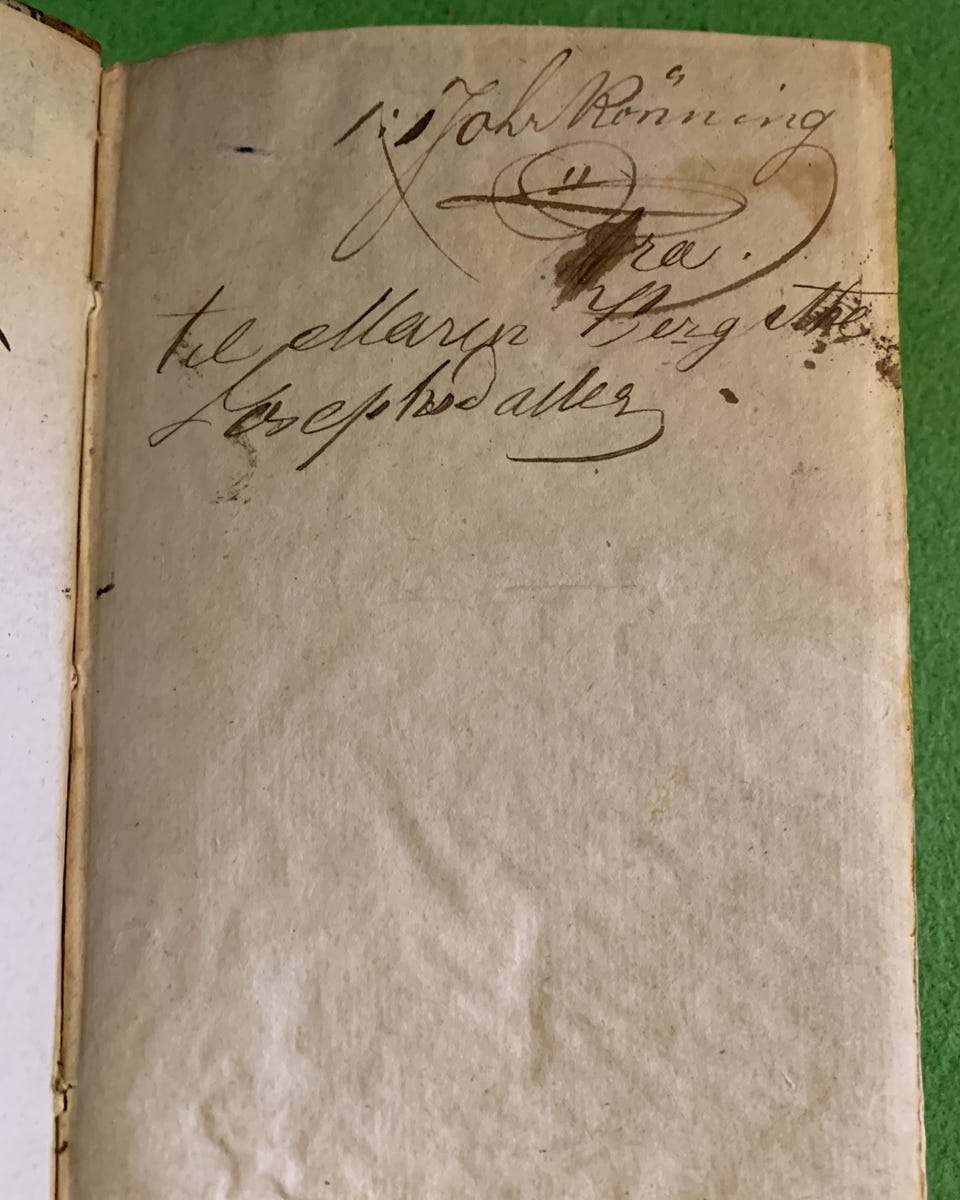 Joh Rönning
Fra.
til Maren Bergithe
Josephsdatter